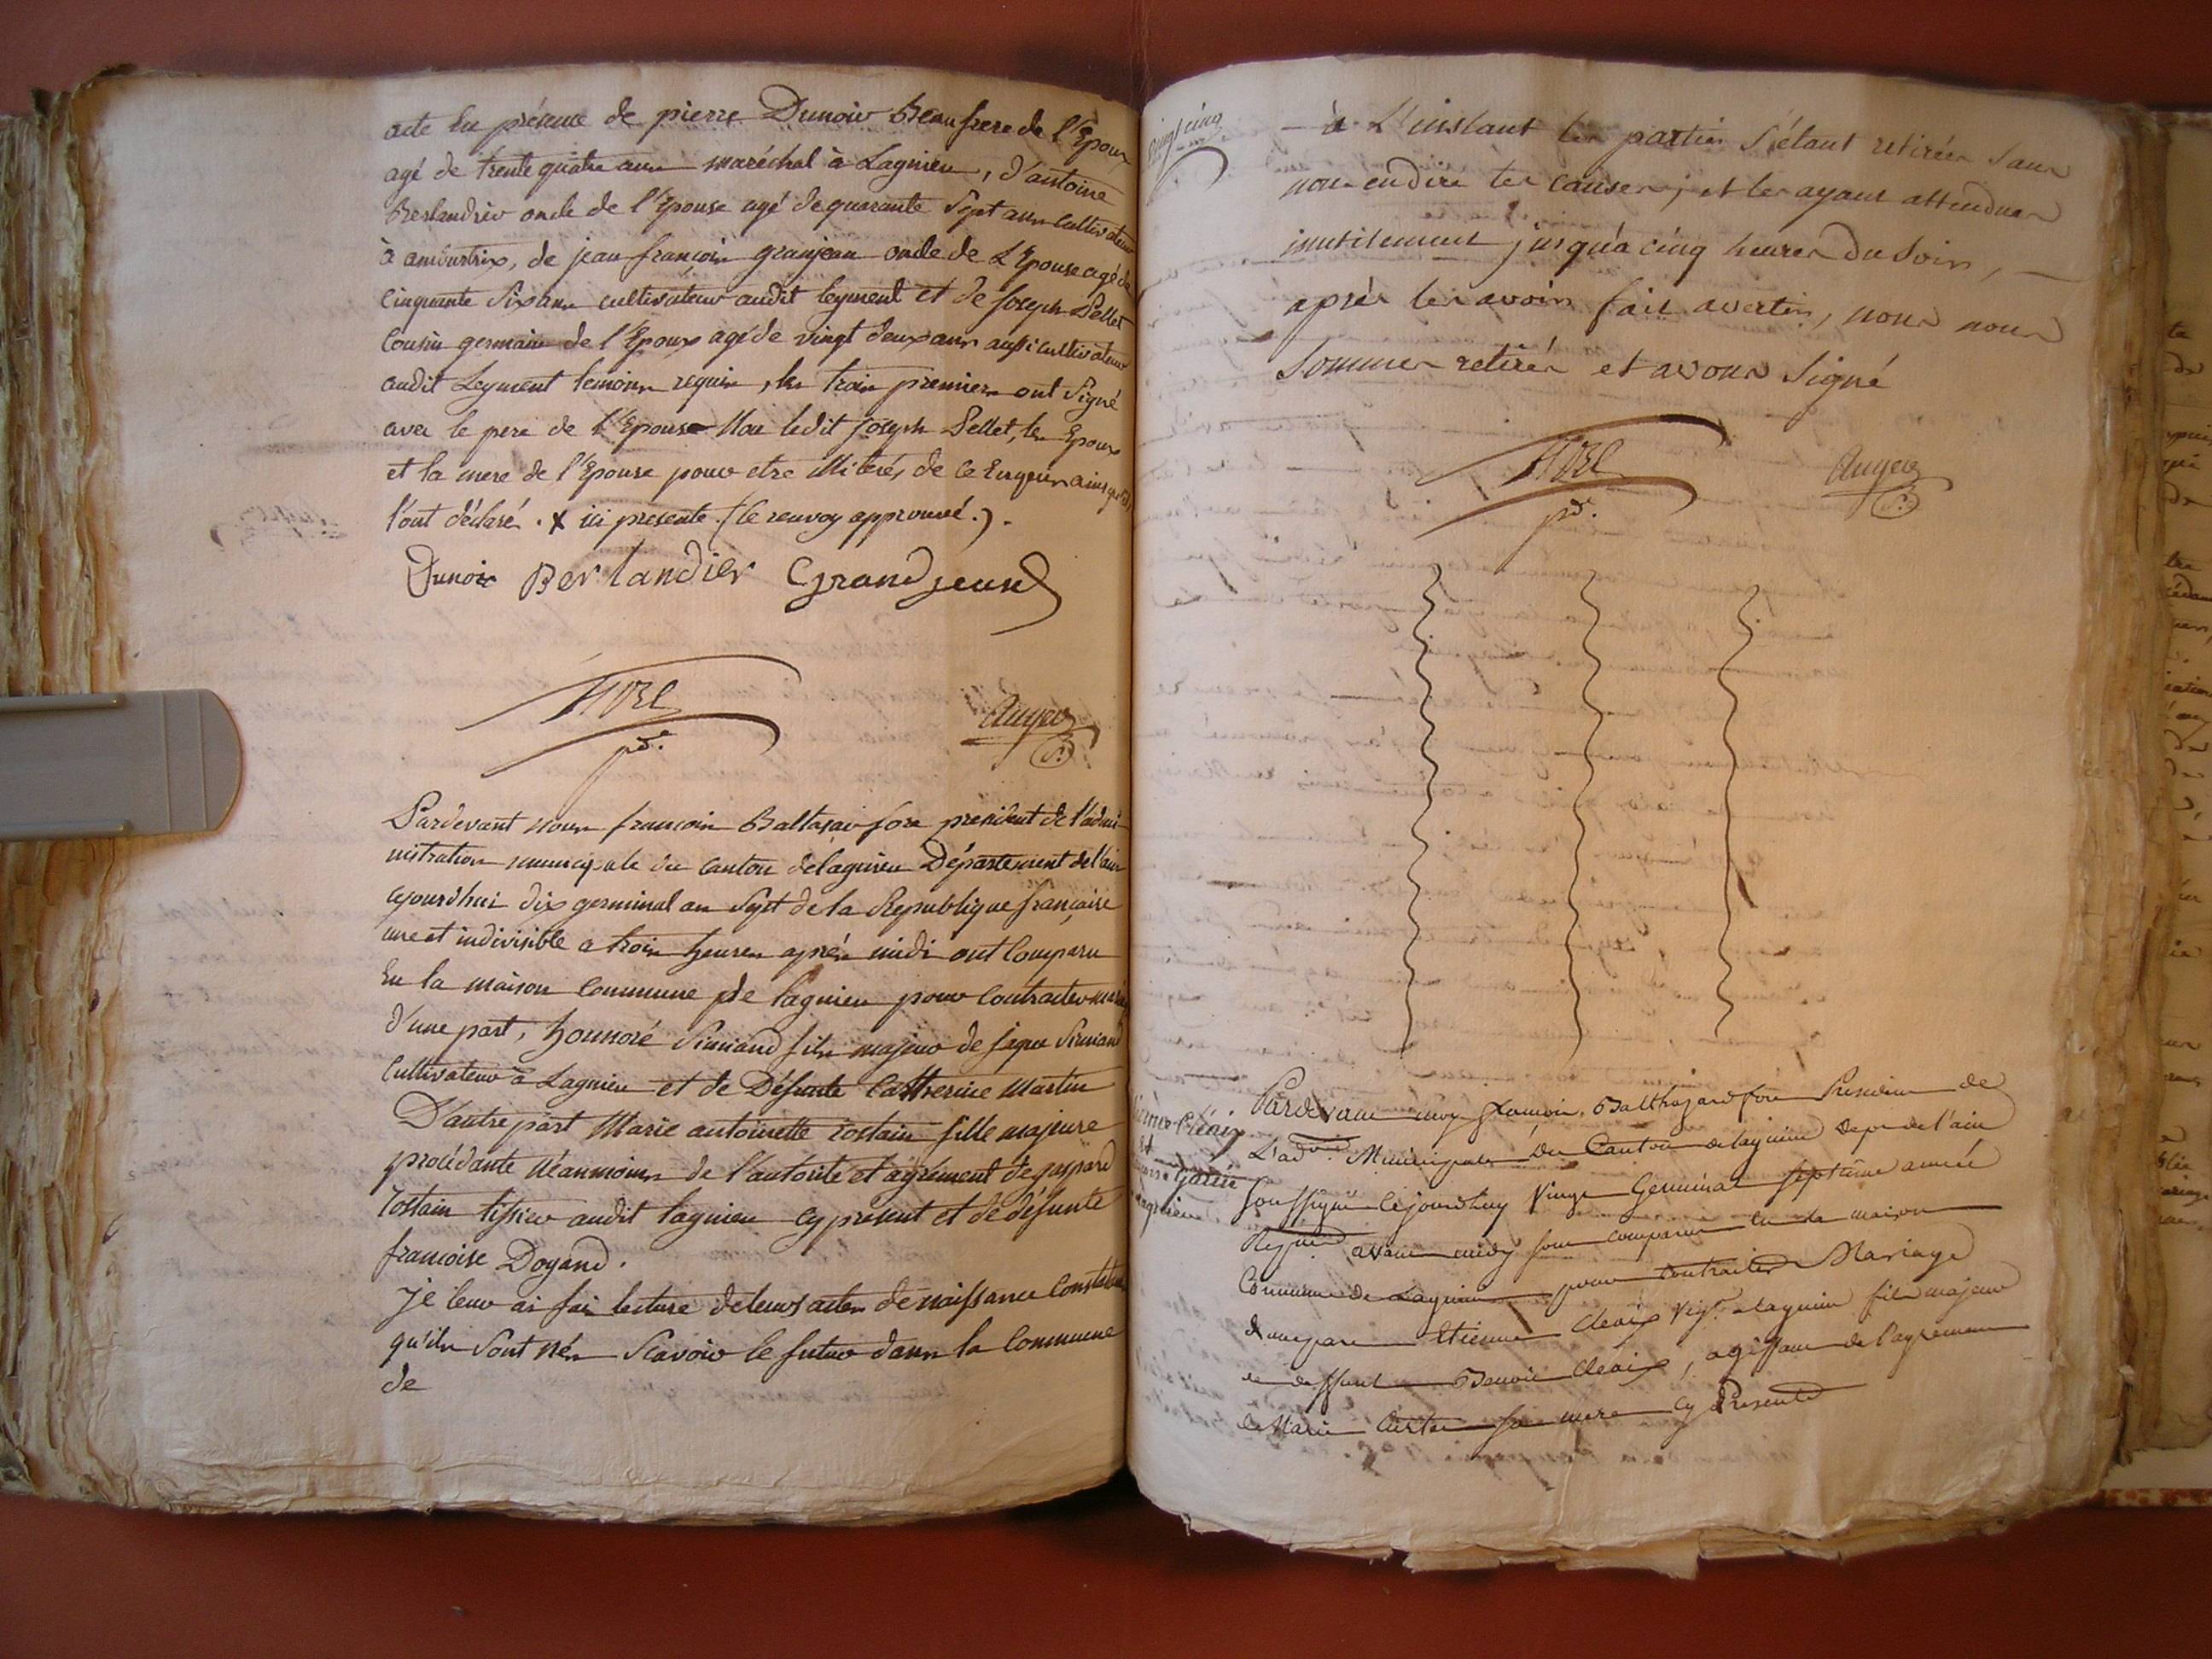 acte En présence de pierre Dunoir Beau frere de l'Epoux
agé de trente quatre ans maréchal à Lagnieu, d'antoine
Berlandier oncle de l'Epouse agé de quarante Sept ans cultivateur
à ambutrix, de jean françois granjean oncle de L'Epouse agé de
Cinquante Six ans cultivateur audit leyment et de joseph Pellet
Cousin germain de l'Epoux agé de vingt deux ans aussi cultivateur
audit Leyment temoins requis, les trois premiers ont Signé
avec le pere de l'Epouse Non ledit joseph Pellet, les Epoux
et la mere de l'Epouse pour etre illiterés de ce Enquis ainsi qu'ils
l'ont déclaré. x ici presente. (le renvoy approuvé.).
Dunoir Berlandier Grandjean
pdt.
Auger
S:
Pardevant nous françois Baltasar president de l'admi-
nistration municipale du canton de lagnieu Département de l'ain
cejourd'hui dix germinal an Sept de la Republique française
une et indivisible a trois heures après midi ont Comparu
En la maison Commune de lagnieu pour Contracter mariage
d'une part, honnoré Simiand fils majeur de jaque Simiand
Cultivateur à Lagnieu et de Défunte Catherine Martin
D'autre part Marie antoinette rostain fille majeure
procédante Néanmoins de l'autorité et agrément de gaspard
rostain tissier audit lagnieu cy present et de défunte
françoise Dogand.
Je leur ai fai lecture de leurs actes de naissance Constatant
qu'ils Sont nés Scavoir le futur dans la Commune
de
Vingt cinq
à L'instant les parties S'étant retirées sans
nous en dire les causes; et les ayant attendues
inutilement jusqu'a cinq heures du Soir,
après les avoir fait avertir, nous nous
Sommes retirés et avons Signé
pdt.
Auger
S:
Etienne Cleaix
et
Garin
lagnieu
Pardevant moy françois Balthazard President de
L'adon. Municipale Du Canton de lagnieu Dept de l'ain
Soussigné cejourdhuy Vingt Germinal septième année
Repne avant midy sont comparus en la maison
Commune de Lagnieu pour contracter Mariage
d'une part Etienne Cleaix lagnieu fils majeur
de deffunt Benoit Cleaix, agissant de l'agrement
de Marie sa mere cy Presente